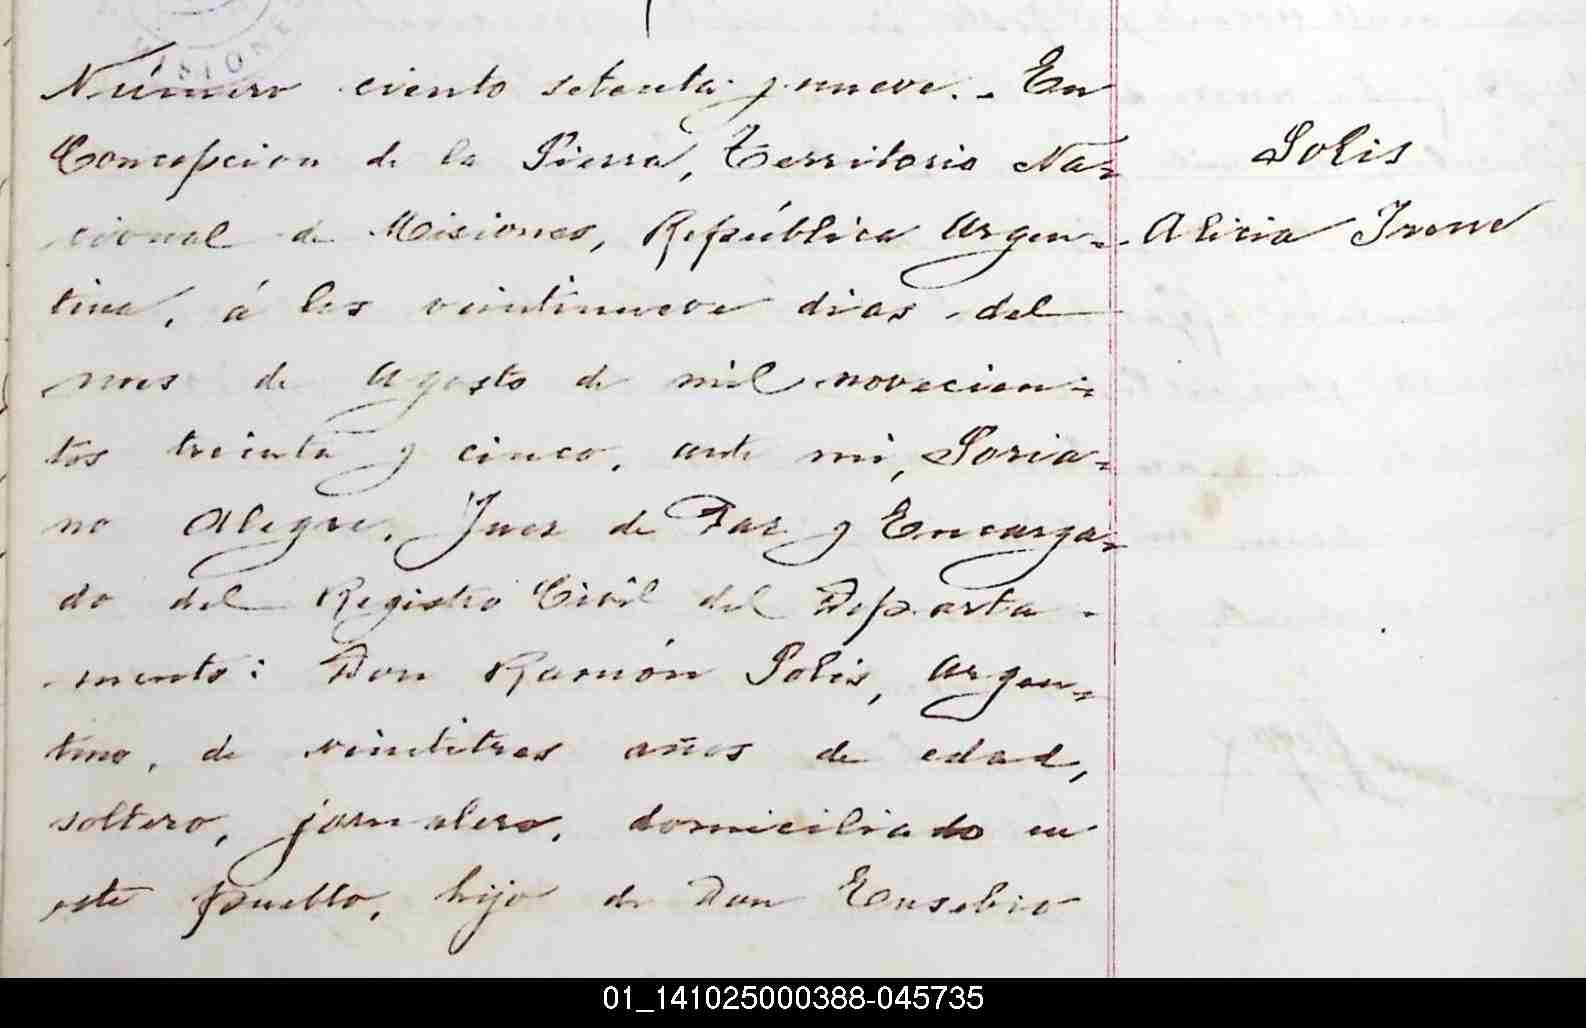 Número ciento setenta y nueve. - En
Concepcion de la Sierra, Territorio Na=
cional de Misiones, República Argen=
tina, á los veintinueve dias del
mes de Agosto de mil novecien=
tos treinta y cinco, ante mi, Soria=
no Alegre, Juez de Paz y Encarga=
do del Registro Civil del Departa-
mento: Don Ramón Solis, Argen=
tino, de veintitres años de edad,
soltero, jornalero, domiciliado en
este pueblo, hijo de Don Eusebio
Solis
Alicia Irene
01_141025000388-045735